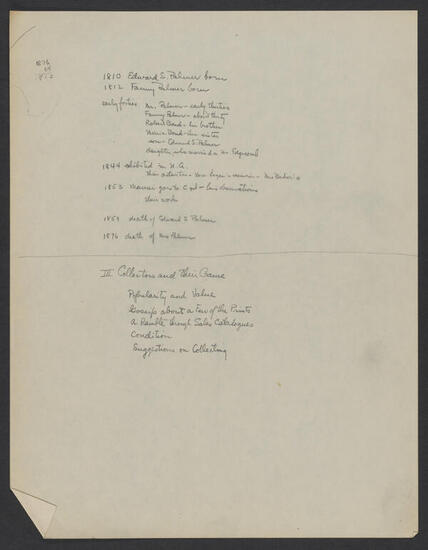 1876
1812
1810 Edward S. Palmer born
1812 Fanny Palmer born
early forties Mr. Palmer - early thirties
Fanny Palmer - about thirty
Robert Bond - her brother
Maria Bond - her sister
son - Edmund S. Palmer
daughter, who married a Mr.
1844 exhibited in N.A.
their activities - - - Mrs
1853 Maria goes to C and - her observations
their work
1859 death of Edward S Palmer
1876 death of Mrs Palmer
III Collectors and their Game
Popularity and Value
Gossip about a Few of the Prints
A Ramble through Sales Catalogues
Condition
Suggestions on Collecting